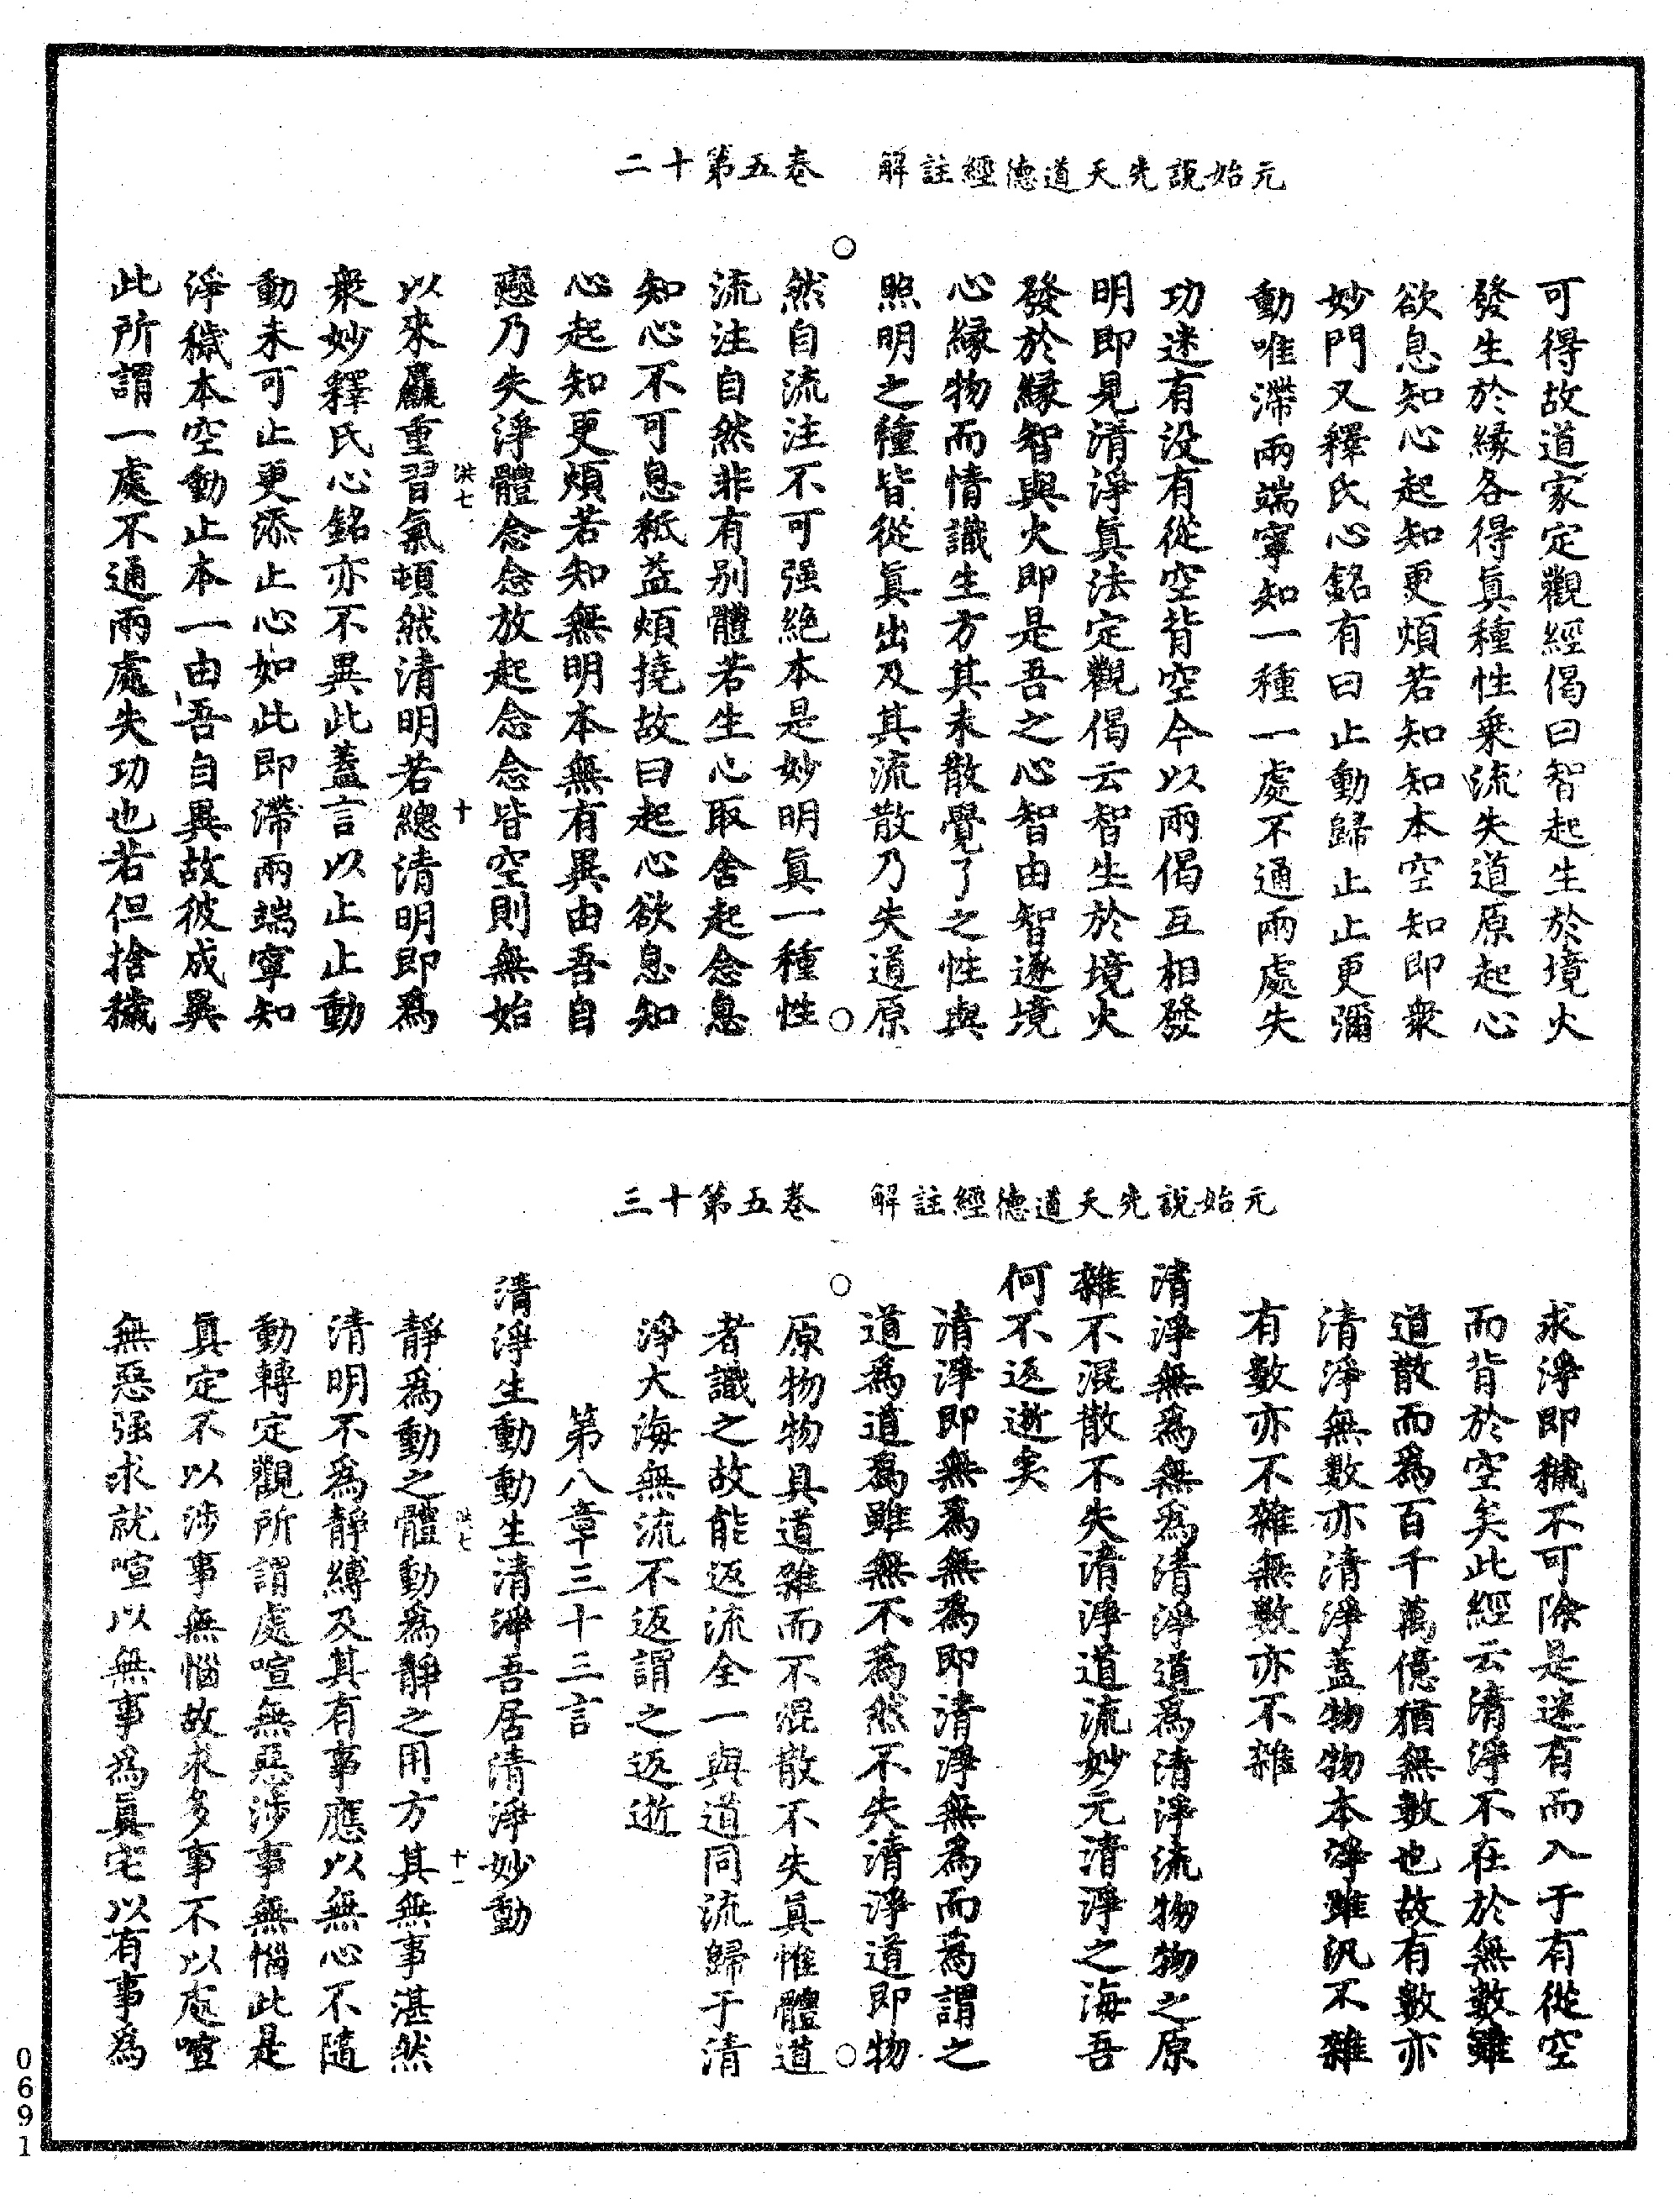 元始說先天道德經註解　卷五第十二
可得故道家定觀經偈曰智起生於境火
發生於緣各得真種性乘流失道原起心
欲息知心起知更煩若知知本空知即衆
妙門又釋氏心銘有曰止動歸止止更彌
動唯滯兩端寧知一種一處不通兩處失
功迷有没有從空背空今以兩偈互相發
明即見清淨真法定觀偈云智生於境火
發於緣智與火即是吾之心智由智遂境
心緣物而情識生方其未散覺了之性與
照明之種皆從真出及其流散乃失道原
然自流注不可强絶本是妙明真一種性
流注自然非有别體若生心取舍起念息
知心不可息秪益煩撓故曰起心欲息知
心起知更煩若知無明本無有異由吾自
戀乃失淨體念念放起念念皆空則無始
以來麤重習氣頓然清明若總清明即爲
洪七　十
衆妙釋氏心銘亦不異此蓋言以止止動
動未可止更添止心如此即滯兩端寧知
淨穢本空動止本一由吾自異故彼成異
此所謂一處不通兩處失功也若但捨穢
元始說先天道德經註解　卷五第十三
求淨即穢不可除是迷有而入于有從空
而背於空矣此經云清淨不在於無數雖
道散而爲百千萬億猶無數也故有數亦
清淨無數亦清淨蓋物物本淨雖汎不雜
有數亦不雜無數亦不雜
清淨無爲無爲清淨道爲清淨流物物之原
雜不混散不失清淨道流妙元清淨之海吾
何不返逝矣
清淨即無爲無爲即清淨無爲而爲謂之
道爲道爲雖無不爲然不失清淨道即物
原物物具道雖而不混散不失真惟體道
者識之故能返流全一與道同流歸于清
淨大海無流不返謂之返逝
第八章三十三言
清淨生動動生清淨吾居清淨妙動
靜爲動之體動爲靜之用方其無事湛然
洪七　十一
清明不爲靜縛及其有事應以無心不隨
動轉定觀所謂處喧無惡涉事無惱此是
真定不以涉事無惱故求多事不以處喧
無惡强求就喧以無事爲真宅以有事爲
0691